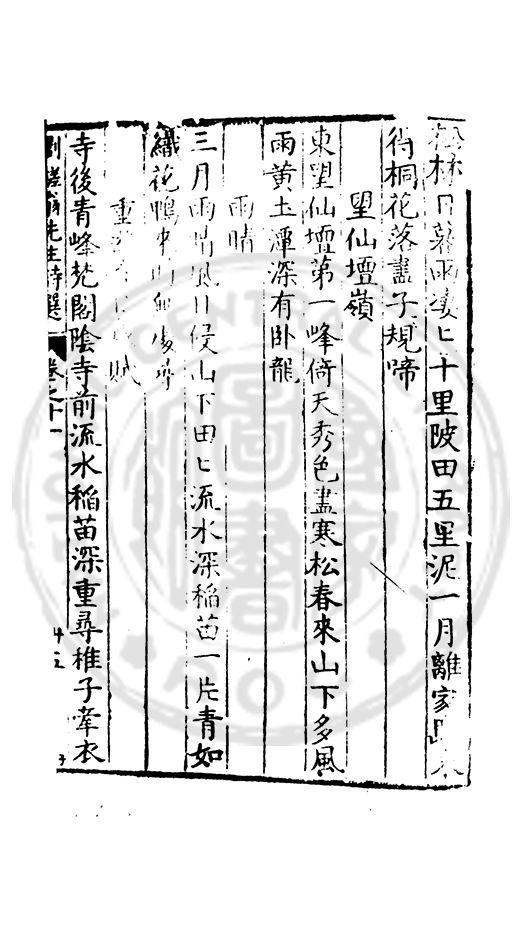 松林日暮雨淒匕十里陂田五里泥一月離家歸未
得桐花落盡子規啼
望仙壇嶺
東望仙壇第一峰倚天秀色盡寒松春來山下多風
雨黃土潭深有卧龍
雨晴
三月雨晴風日侵山下田匕流水深稲苗一片青如
織花鴨來
重
賦
寺後青峰梵閣陰寺前流水稲苗深重尋稚子牽衣
先生詩選 卷之十一